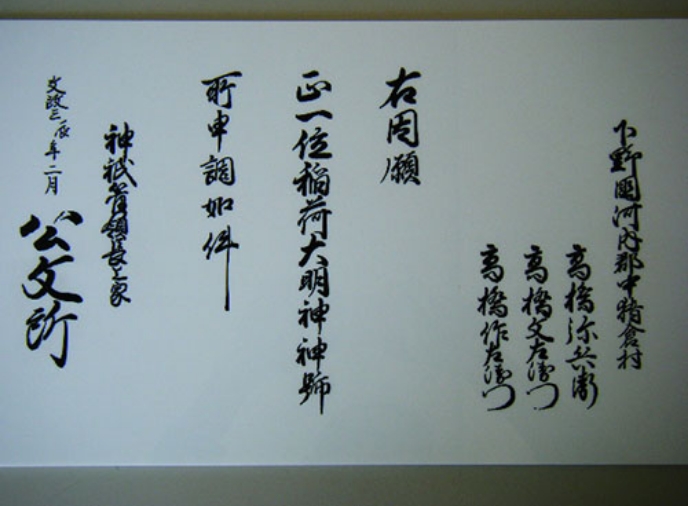 下野國河内郡中猪倉村
高橋弥兵衛
高橋文右衛門
高橋作右衛門
右因願
正一位稲荷大明神神號
所申調如件
神祇管領長上家
文政三辰年二月
公文所